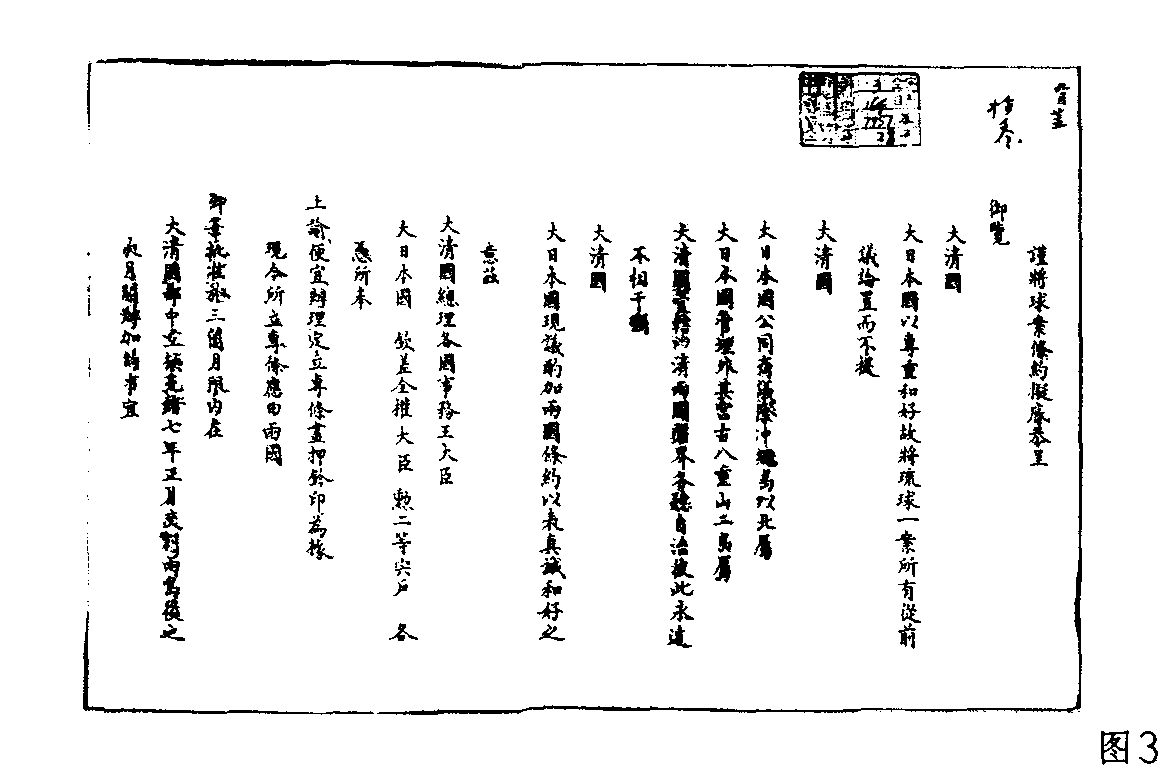 謹將球案條約擬底恭呈
御覽
大清國
大日本國以專重和好故將琉球一案所有從前
議論置而不提
大清國
大日本國公同商議除沖繩島以北屬
大日本國管理外其宮古八重山二島屬
大清國管轄以清兩國疆界各聽自治彼此永遠
不相干預
大清國
大日本國現議酌加兩國條約以表真誠和好之
意茲
大清國總理各國事務王大臣
大日本國 欽差全權大臣 勲二等宍戶 各
憑所奉
上諭便宜辦理定立專條畫押鈐印為據
現今所立專條應由兩國
御筆批准於三個月限內在
大清國都中互換光緒七年正月交割兩島後之
次月開辦加約事宜
图3